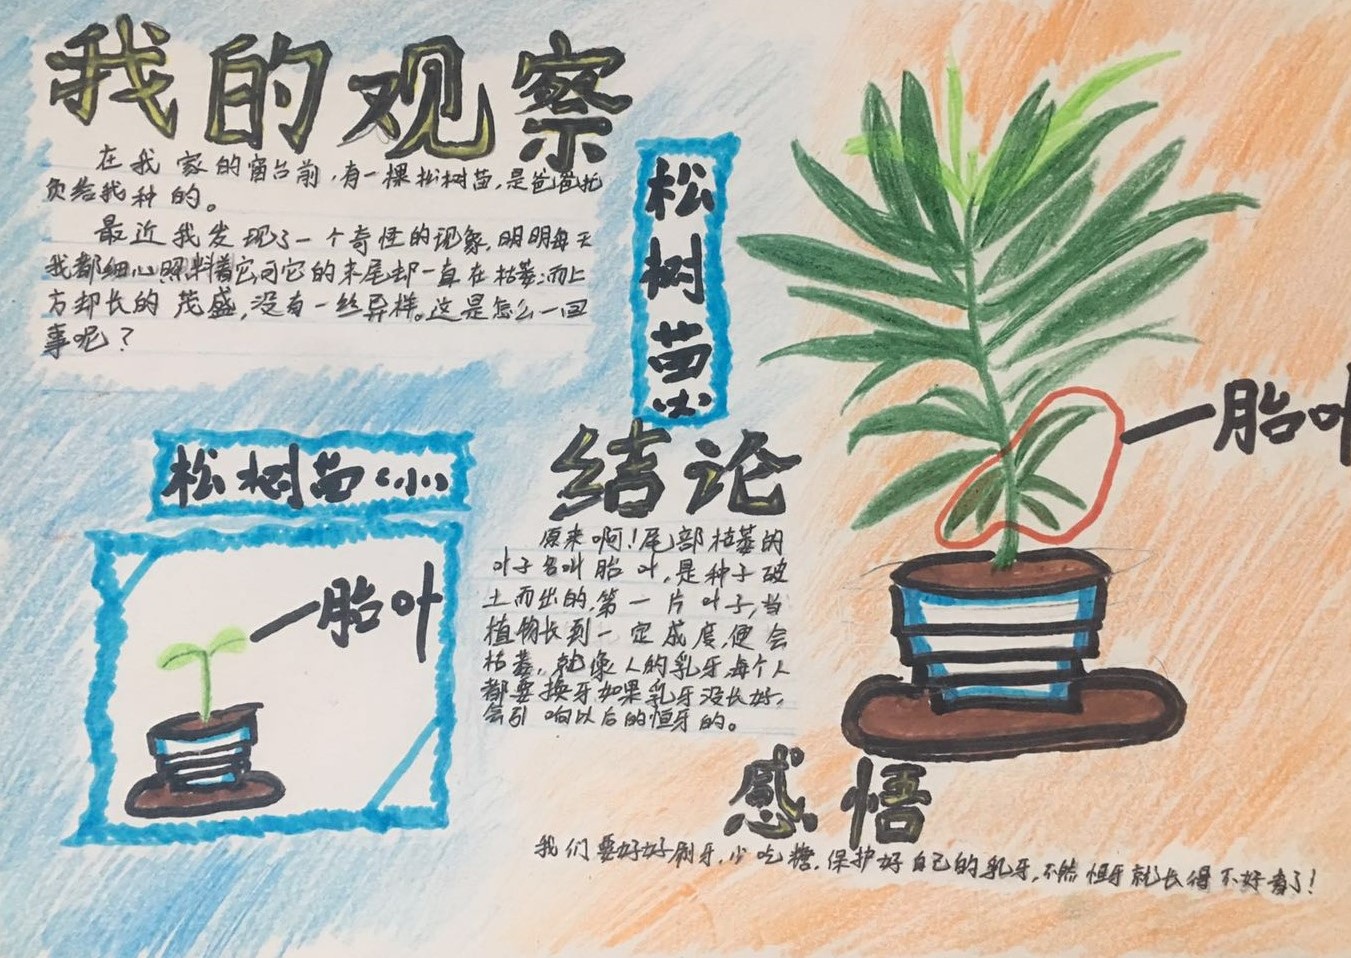 我的观察
在我家的窗台前，有一棵松树苗，是爸爸托
负给我种的。
最近我发现了一个奇怪的现象，明明每天
我都细心照料着它，可它的末尾却一直在枯萎；而上
方却长的茂盛，没有一丝异样。这是怎么一回
事呢？
松树苗
松树苗（小）
一胎叶
结论
原来啊！尾部枯萎的
叶子名叫胎叶，是种子破
土而出的，第一片叶子，当
植物长到一定成度，便会
枯萎，就像人的乳牙，每个人
都要换牙如果乳牙没长好，
会引响以后的恒牙的。
一胎叶
感悟
我们要好好刷牙，少吃糖，保护好自己的乳牙，不然恒牙就长得不好看了！